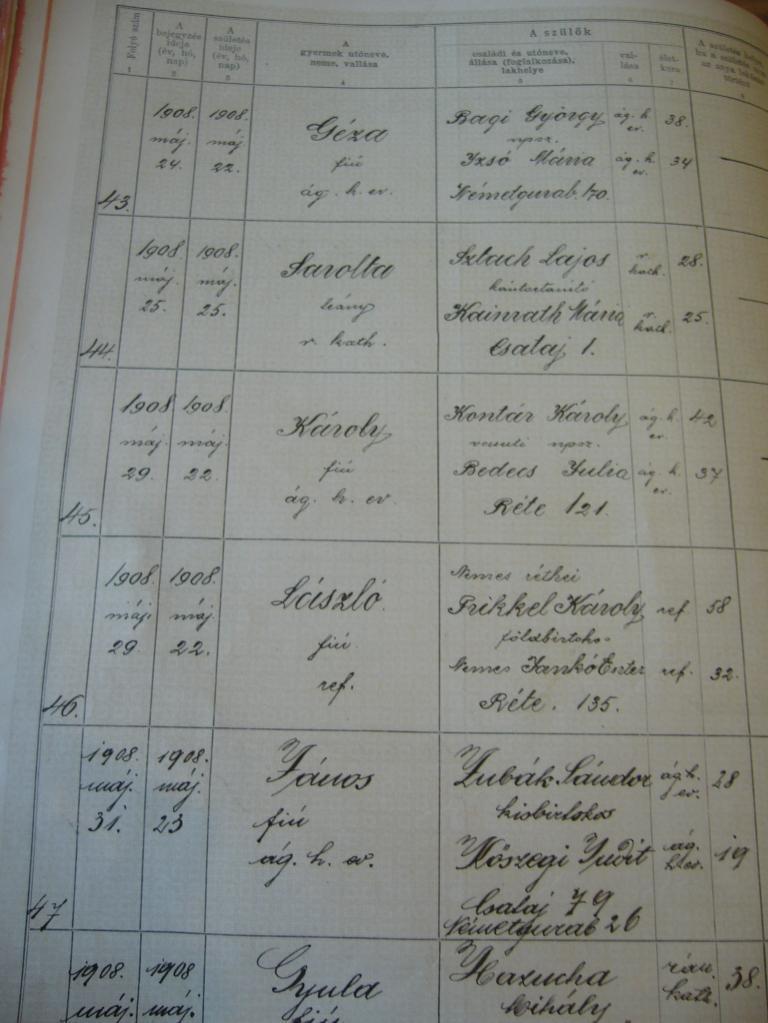 Folyó szám
A bejegyzés ideje (év, hó, nap)
A születés ideje (év, hó, nap)
A gyermek utóneve, neme, vallása
A szülők
családi és utóneve, állása (foglalkozása), lakhelye
val- lása
élet- kora
1 2 3 4 5 6 7
43.
1908. máj. 24.
1908. máj. 22.
Géza
fiú
ág. h. ev.
Bagi György ág. h. ev. 38.
npsz.
Izsó Mária ág. h. ev. 34
Németgurab 170.
44.
1908 máj. 25.
1908. máj. 25.
Sarolta
leány
r. kath.
Sztach Lajos r. kath. 28.
kántortanító
Kainrath Mária r. kath. 25.
Csataj 1.
45.
1908 máj. 29.
1908. máj. 22.
Károly
fiú
ág. h. ev.
Kontár Károly ág. h. ev. 42
npsz.
Bedecs Julia ág. h. ev. 37
Réte 121.
46.
1908. máj. 29.
1908. máj. 22.
László
fiú
ref.
Nemes réthei
Prikkel Károly ref 58
földbirtokos
Nemes Jankó Eszter ref. 32.
Réte. 135.
47
1908. máj. 31.
1908. máj. 23
János
fiú
ág. h. ev.
Zubák Sándor ág. h. ev. 28
kisbirtokos
Kőszegi Judit ág. h. ev. 19
Csataj 79
Németgurab 26
1908. máj.
1908 máj.
Gyula
fiú
Hazucha róm. kath. 38.
Mihály